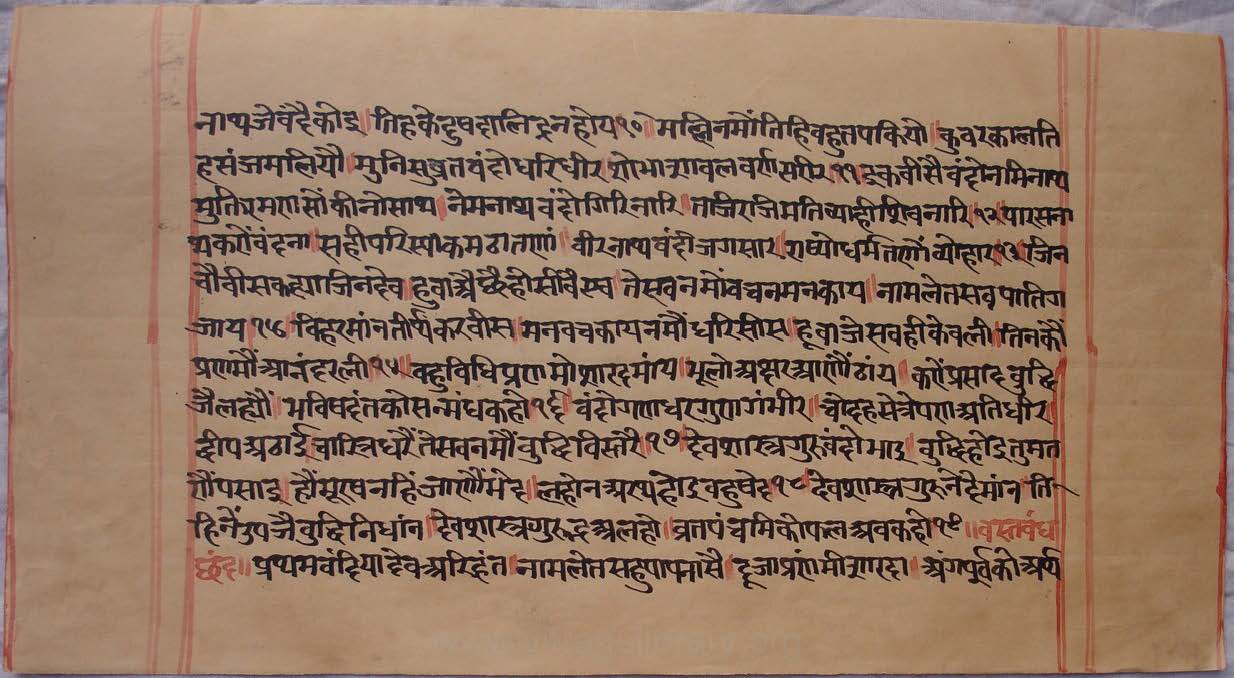 नाथजेवंदैकोइ॥तिहकेदुषदालिद्रनहोय१०॥मल्लिनमौंतिहिवहुतपकियौ॥कुवरकालति
हसंजमलियौ॥मुनिसुव्रतवंदोधरिधीर॥सोभासावलवर्णसरीर॥११॥इकवीसैवंदोनमिनाथ
मुतिरमणसोंकीनोसाथ॥नेमनाथवंदोगिरिनारि॥तजिराजिमतिव्याहीशिवनारि॥१२॥पारसना
थकरोंवंदना॥सहीपरिस्याकमठातणां॥वीरनाथवंदौजगसार॥राष्योधर्मतणोंव्योहार॥१३॥जिन
चौवीसकह्याजिनदेव॥हूवाअैछैहोसीवैस्व॥तेसवनमोंवचनमनकाय॥नामलेतसवपातिग
जाय॥१४॥विहरमांनतीर्थंकरवीस॥मनवचकायनमौंधरिसीस॥हूवाजेसवहीकेवली॥तिनकौं
प्रणमौंआनंदरली॥१५॥वहुविधिप्रणमोशारदमांय॥भूलोअक्षरआणौंठांय॥करोंप्रसादवुद्धि
जैलह्यौं॥भविषदंतकोसन्मंधकहो॥१६॥वंदोगणधरगुणगंभीर॥चोदहसेत्रेपणअतिधीर॥
द्वीपअढाईचारित्रधरैं॥तेसवनमौंवुद्धिविस्तरै॥१७॥देवशास्त्रगुरुवंदोभाइ॥वुद्धिहोइतुमत
णौंपसाइ॥हौंमूरषनहिंजाणौंभेद॥लहोनअरथहोइवहुषेद॥१८॥देवशास्त्रगुरुनेंदेमांन॥ति
हिनेंउपजैवुद्धिनिधांन॥देवशास्त्रगुरुद्रअलहो॥व्रतपंचमिकोफलअवकहो॥१९॥॥वस्तवंध
छंद॥॥प्रथमवंदियादेवअरिहंत॥नामलेतसहुपापनासै॥दूजाप्रणमौशारदा॥अंगपूर्वकोअर्थ